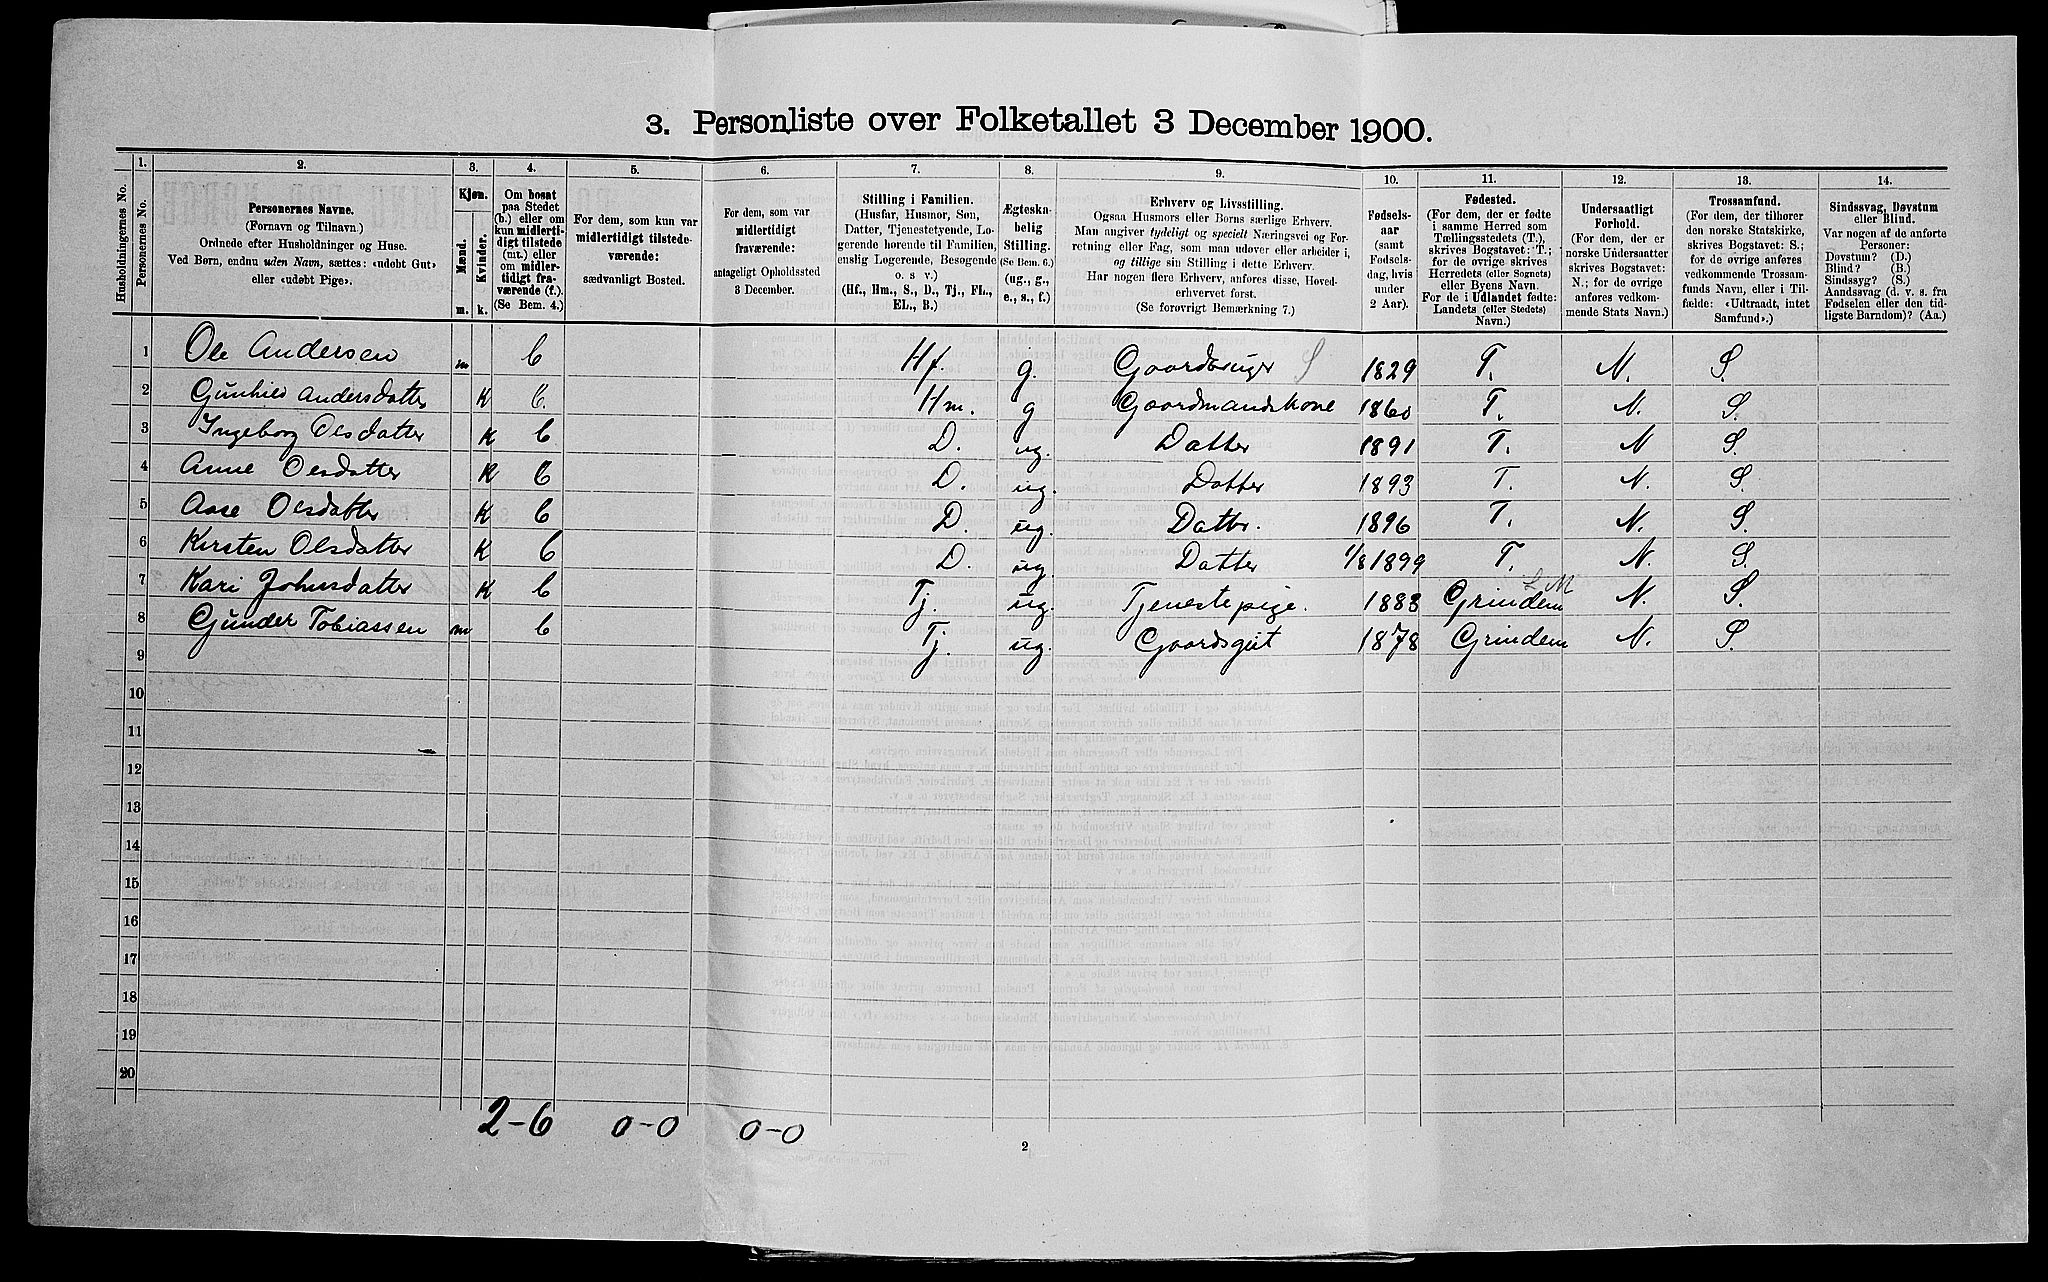 3. Personliste over Folketallet 3 December 1900.
1. 2. 3. 4. 5. 6. 7. 8. 9. 10. 11. 12. 13. 14.
Husholdningernes No.
Personernes No.
Personernes Navne.
(Fornavn og Tilnavn.)
Ordnede efter Husholdninger og Huse.
Ved Børn, endnu uden Navn, sættes: «udøbt Gut»
eller «udøbt Pige».
Kjøn.
Mænd.
Kvinder.
m. k.
Om bosat
paa Stedet
(b.) eller om
kun midlerti-
digt tilstede
(mt.) eller
om midler-
tidigt fra-
værende (f.).
(Se Bem. 4.)
For dem, som kun var
midlertidigt tilstede-
værende:
sædvanligt Bosted.
For dem, som var
midlertidigt
fraværende:
antageligt Opholdssted
3 December.
Stilling i Familien.
(Husfar, Husmor, Søn,
Datter, Tjenestetyende, Lo-
gerende hørende til Familien,
enslig Logerende, Besøgende
o. s. v.)
(Hf., Hm., S., D., Tj., FL.,
EL., B.)
Ægteska-
belig
Stilling.
(Se Bem. 6.)
(ug., g.,
e., s., f.)
Erhverv og Livsstilling.
Ogsaa Husmors eller Børns særlige Erhverv.
Man angiver tydeligt og specielt Næringsvei og For-
retning eller Fag, som man udøver eller arbeider i,
og tillige sin Stilling i dette Erhverv.
Har nogen flere Erhverv, anføres disse, Hoved-
erhvervet først.
(Se forøvrigt Bemærkning 7.)
Fødsels-
aar
(samt
Fødsels-
dag, hvis
under
2 Aar).
Fødested.
(For dem, der er fødte
i samme Herred som
Tællingsstedets (T.),
skrives Bogstavet: T.;
for de øvrige skrives
Herredets (eller Sognets)
eller Byens Navn.
For de i Udlandet fødte:
Landets (eller Stedets)
Navn.)
Undersaatligt
Forhold.
(For dem, der er
norske Undersaatter
skrives Bogstavet:
N.; for de øvrige
anføres vedkom-
mende Stats Navn.)
Trossamfund.
(For dem, der tilhører
den norske Statskirke,
skrives Bogstavet: S.;
for de øvrige anføres
vedkommende Trossam-
funds Navn, eller i Til-
fælde: «Udtraadt, intet
Samfund».)
Sindssvag, Døvstum
eller Blind.
Var nogen af de anførte
Personer:
Døvstum? (D.)
Blind? (B.)
Sindssyg? (S.)
Aandssvag (d. v. s. fra
Fødselen eller den tid-
ligste Barndom)? (Aa.)
1 Ole Andersen m b Hf. g. Gaardbruger S 1829 T. N. S.
2 Gunhild Andersdatter K b. Hm. g Gaardmandskone 1860 T. N. S.
3 Ingeborg Olsdatter K b D. ug. Datter 1891 T. N S.
4 Anne Olsdatter K b D. ug. Datter 1893 T. N. S.
5 Aase Olsdatter K b D. ug. Datter. 1896 T. N. S.
6 Kirsten Olsdatter K b D. ug. Datter 1/8 1899 T. N. S.
7 Kari Johnsdatter K b Tj. ug. Tjenestepige. 1883 Grindem N. S.
8 Gunder Tobiassen m b Tj. ug. Gaardsgut 1878 Grindem N. S.
9
10
11
12
13
14
15
16
17
18
19
20
2-6 0-0 0-0
2